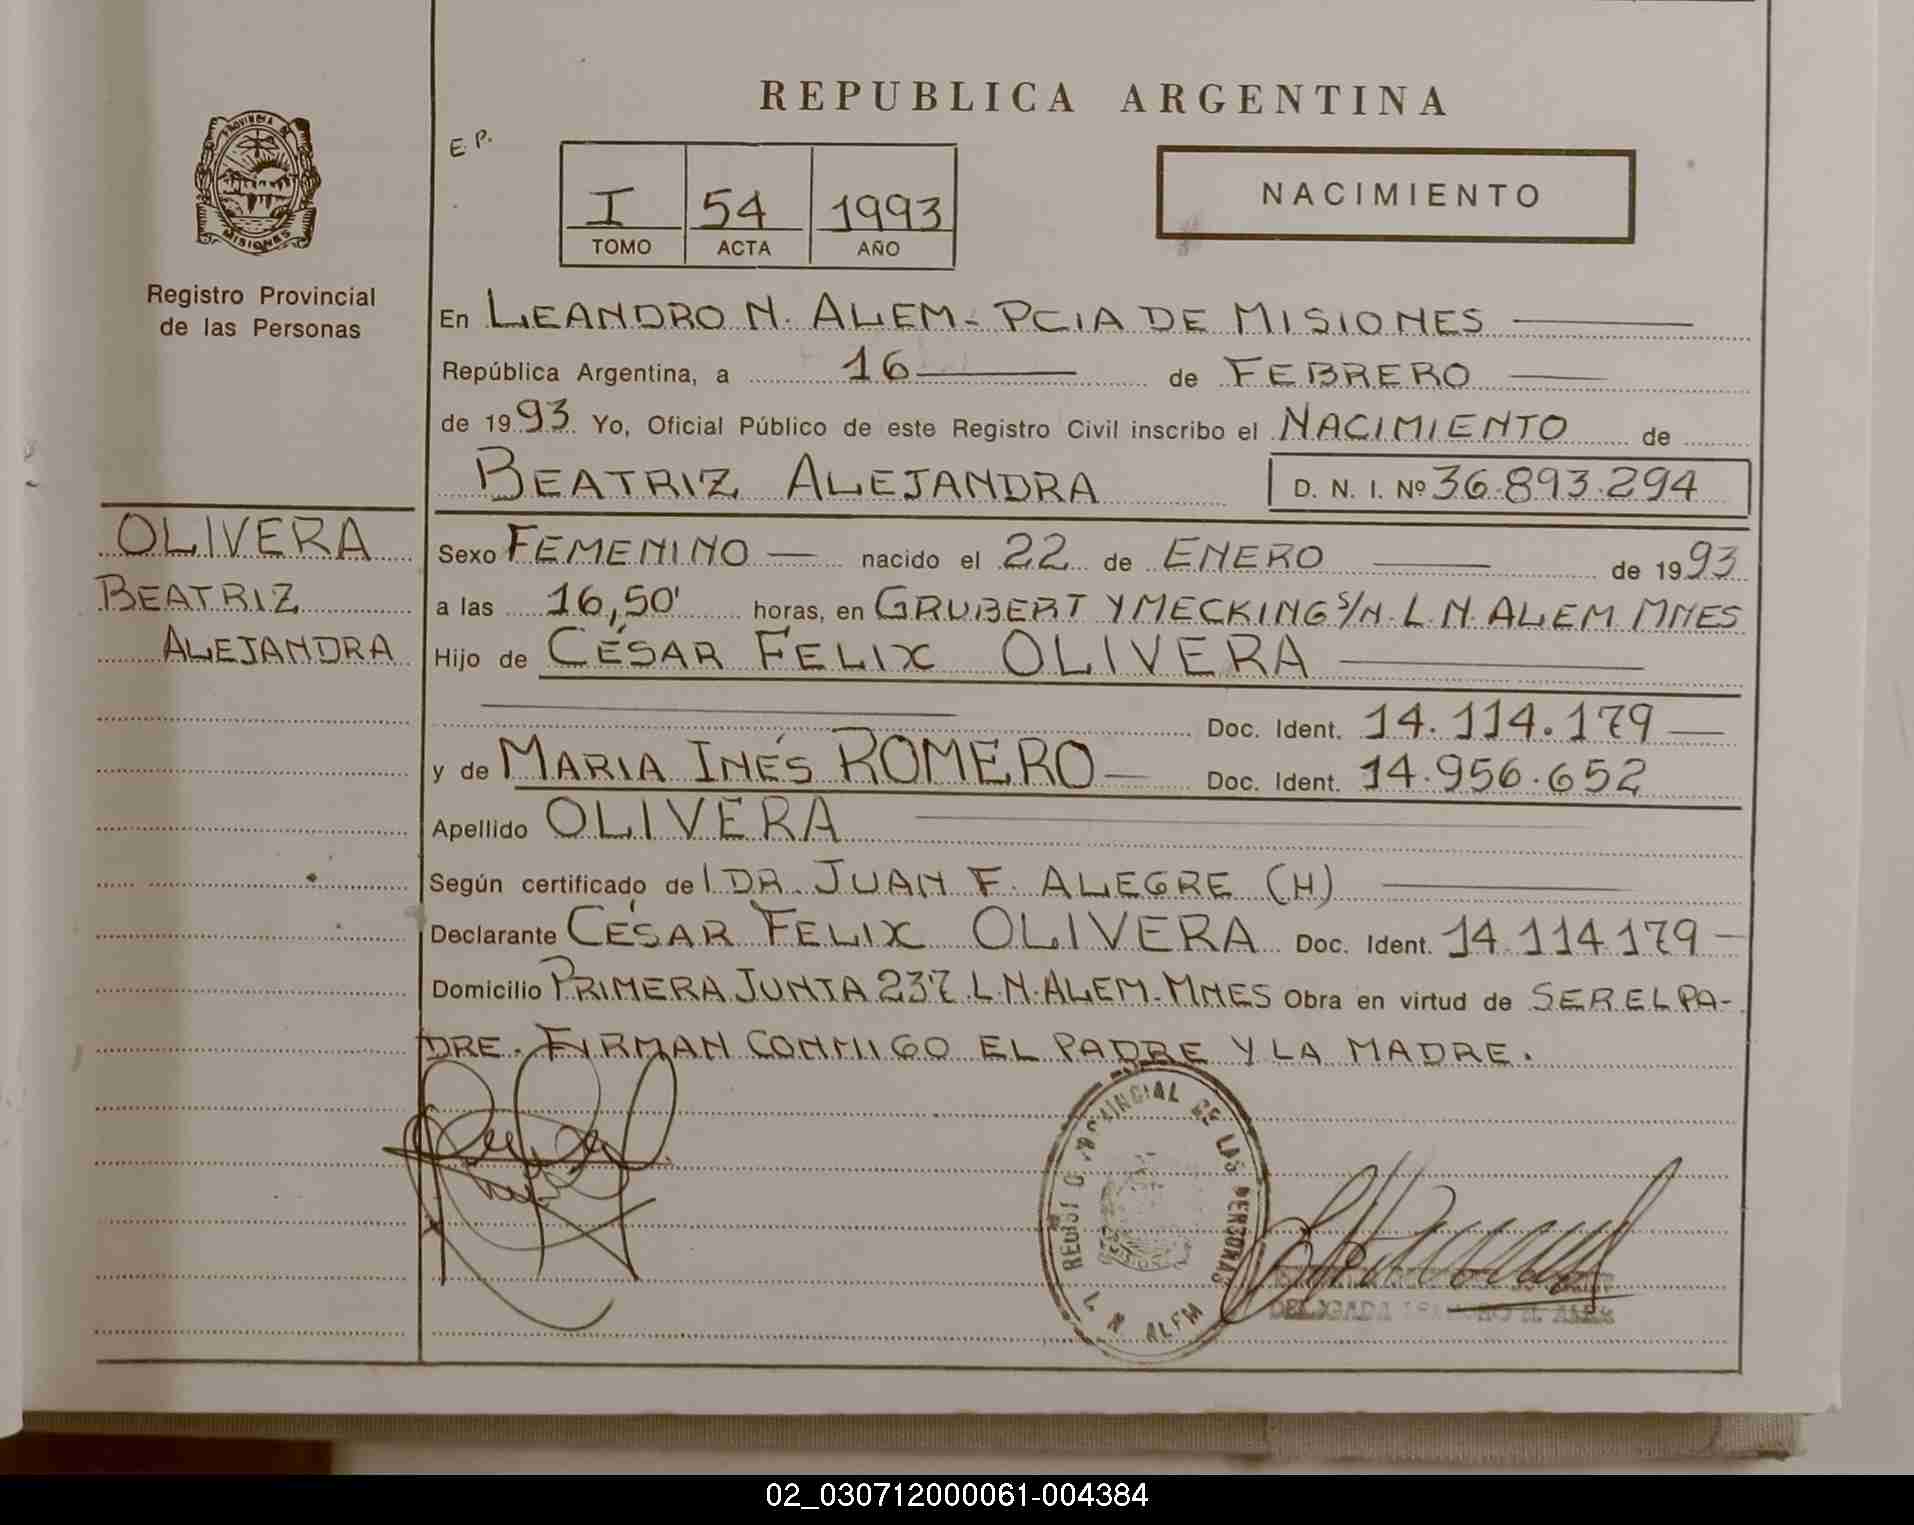 REPUBLICA ARGENTINA
E. P.
PROVINCIA DE
MISIONES
I 54 1993
TOMO ACTA AÑO
NACIMIENTO
Registro Provincial
de las Personas
En LEANDRO N. ALEM - PCIA DE MISIONES
República Argentina, a 16 de FEBRERO
de 1993 Yo, Oficial Público de este Registro Civil inscribo el NACIMIENTO de
BEATRIZ ALEJANDRA D. N. I. Nº 36.893.294
OLIVERA
BEATRIZ
ALEJANDRA
Sexo FEMENINO — nacido el 22 de ENERO — de 1993
a las 16,50' horas, en GRUBERT Y MECKING S/N. L. N. ALEM MNES
Hijo de CÉSAR FELIX OLIVERA
Doc. Ident. 14.114.179 —
y de MARIA INÉS ROMERO — Doc. Ident. 14.956.652
Apellido OLIVERA
Según certificado del DR. JUAN F. ALEGRE (H)
Declarante CÉSAR FELIX OLIVERA Doc. Ident. 14.114.179 —
Domicilio PRIMERA JUNTA 237 L.N. ALEM. MNES Obra en virtud de SER EL PA-
DRE. FIRMAN CONMIGO EL PADRE Y LA MADRE.
REGISTRO PROVINCIAL DE LAS PERSONAS
L. N. ALEM
DELEGADA LEANDRO N. ALEM
02_030712000061-004384